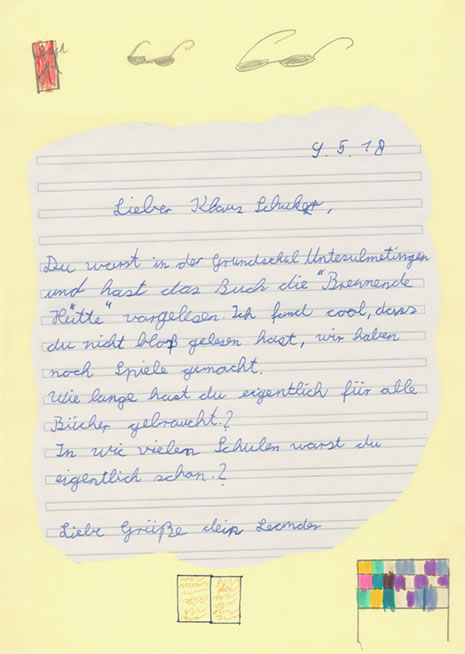 9.5.18
Lieber Klaus Schuker,
Du warst in der Grundschul Untesulmetingen
und hast das Buch die "Brennende
Hütte" vorgelesen. Ich fand cool, dass
du nicht bloß gelesen hast, wir haben
noch Spiele gemacht.
Wie lange hast du eigentlich für alle
Bücher gebraucht?
In wie vielen Schulen warst du
eigentlich schon?
Liebe Grüße dein Leander